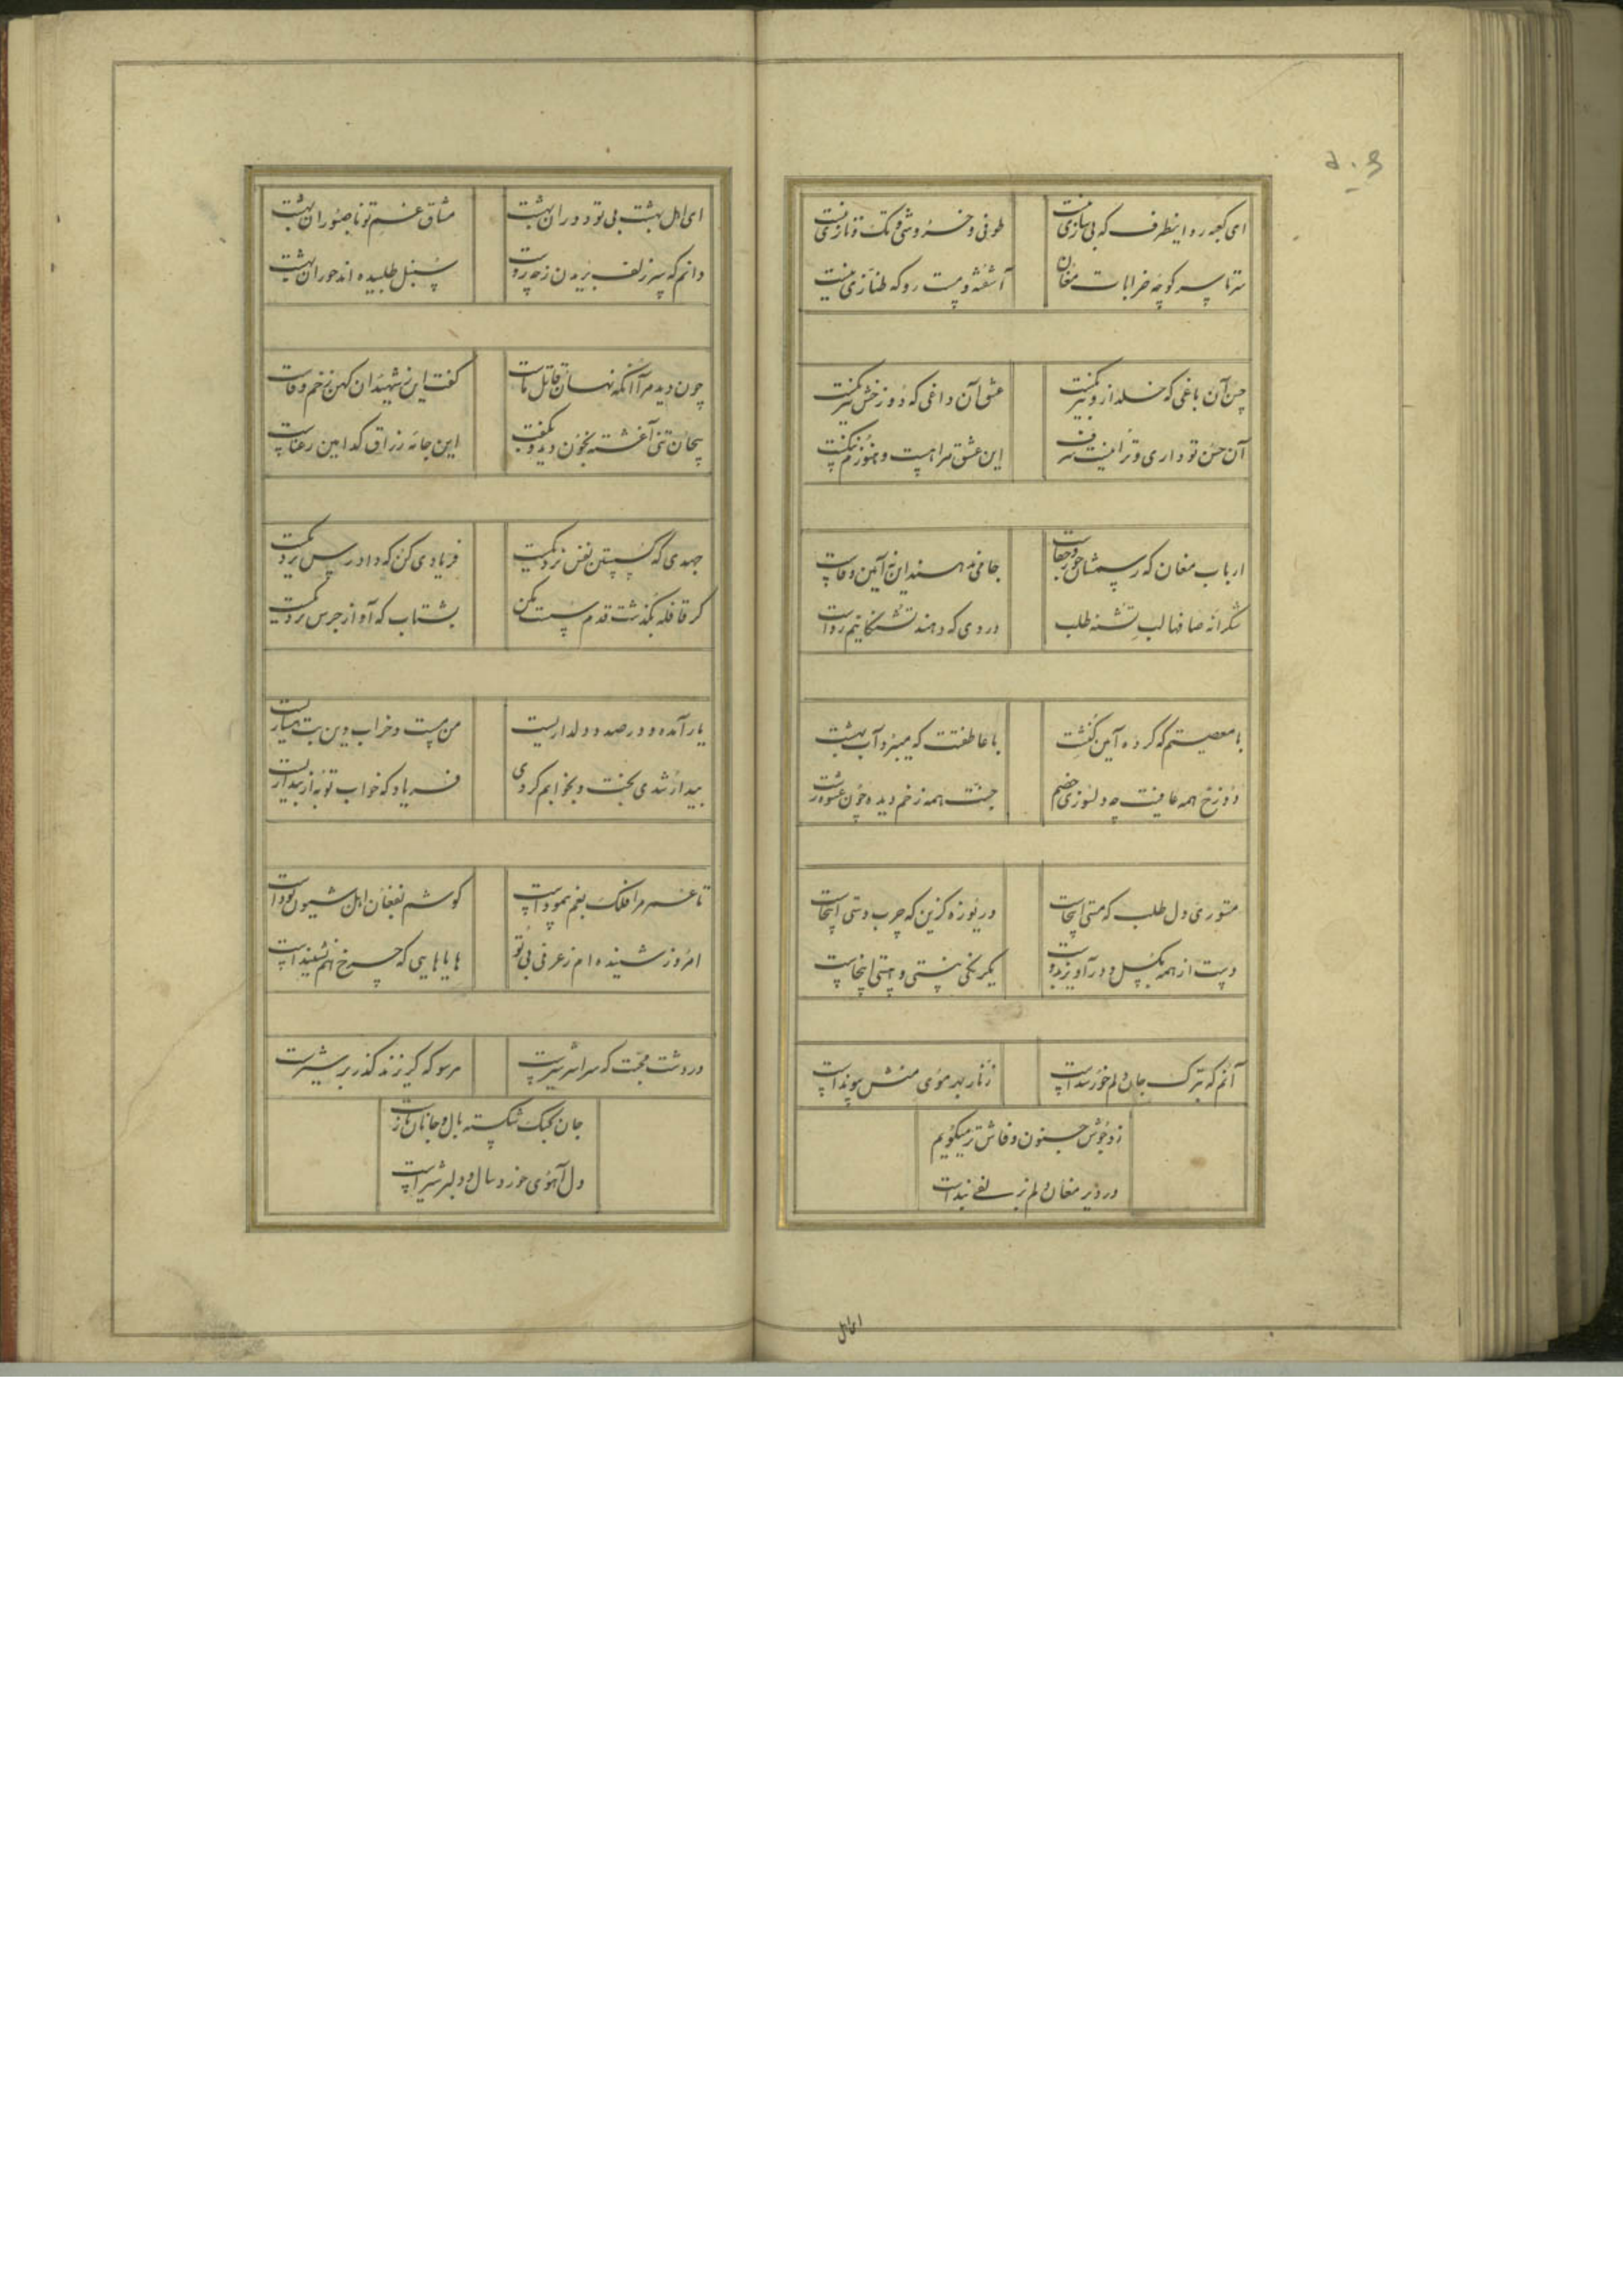 ای کعبه رو اینطرف که بی سازی نیست
طوفی و خروشی و تک و تازی نیست
سرتاسر کوچه خرابات مغان
آشفته و مست رو که طنازی نیست
حسن آن باغی که خلد ازو نیز کمست
عشق آن داغی که دوزخش نیز کمست
آن حسن تو داری و ترا نیست
این عشق مرا هست و هنوزم
ارباب مغان که رسمشان جور و جفاست
جامی ندهند این نه آیین وفاست
شکرانه صافها لب تشنه طلب
دردی که دهند تشنگانیم رواست
با معصیتم که کرده آیین کنشت
با عاطفتت که میبرد آب بهشت
دوزخ همه عافیت چه دلسوزی خصم
جنت همه زخم دیده چون
مستوری دل طلب که مستی اینجاست
دریوزه گزین که چرب دستی اینجاست
دست از همه بگسل و درآویز بدوست
یکرنگی نیستی و هستی اینجاست
آنم که بترک جان دلم خورسند است
زنار بهر موی منش پیوند است
زد جوش جنون و فاش تر میگویم
در دیر مغان دلم بند است
ای اهل بهشت بی تو دوران بهشت
مشتاق غم تو ناصبوران بهشت
دانم که سر زلف بریدن ز چه روست
سنبل طلبیده اند حوران بهشت
چون دید مرا آنکه نهان قاتل ماست
گفت این ز شهیدان کهن زخم وفاست
بیجان تنی آغشته بخون دید و بگفت
این جامه رزاق کدامین رعناست
جهدی که گسستن نفس نزدیکست
فریادی کن که دادرس نزدیکست
گر قافله بگذشت قدم سست مکن
بشتاب که آواز جرس نزدیکست
یار آمده و در صدد دلداریست
من مست و خراب وین بت هشیاریست
بیدار شدی بخت و بخوابم کردی
فریاد که خواب تو به از بیداریست
تا غمر مرا فلک بغم بیموداست
گوشم بفغان اهل شیون بوداست
امروز شنیده ام ز عرفی بی تو
هایاهایی که چرخ هم نشنیداست
در دشت محبت که سراسر تیر است
هر سو که گریزند گذر بر شیر است
جان کبک شکسته بال و جانان باز است
دل آهوی خورد سال و دلبر شیر است